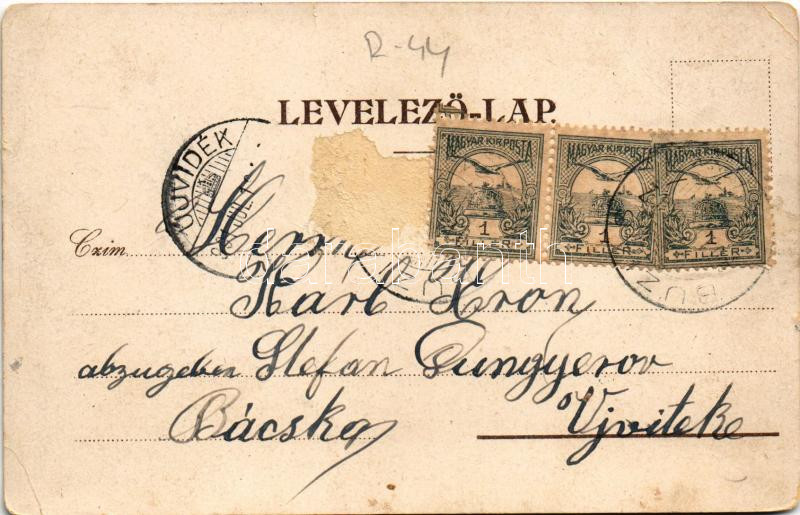 R-44
LEVELEZŐ-LAP.
MAGYAR KIR. POSTA MAGYAR KIR. POSTA MAGYAR KIR. POSTA
1 1 1
FILLÉR FILLÉR FILLÉR
UJVIDÉK
Czim:
Herrn
Karl Hron
abzugeben Stefan Dungyerov
Bácska Ujviteke
darabanth